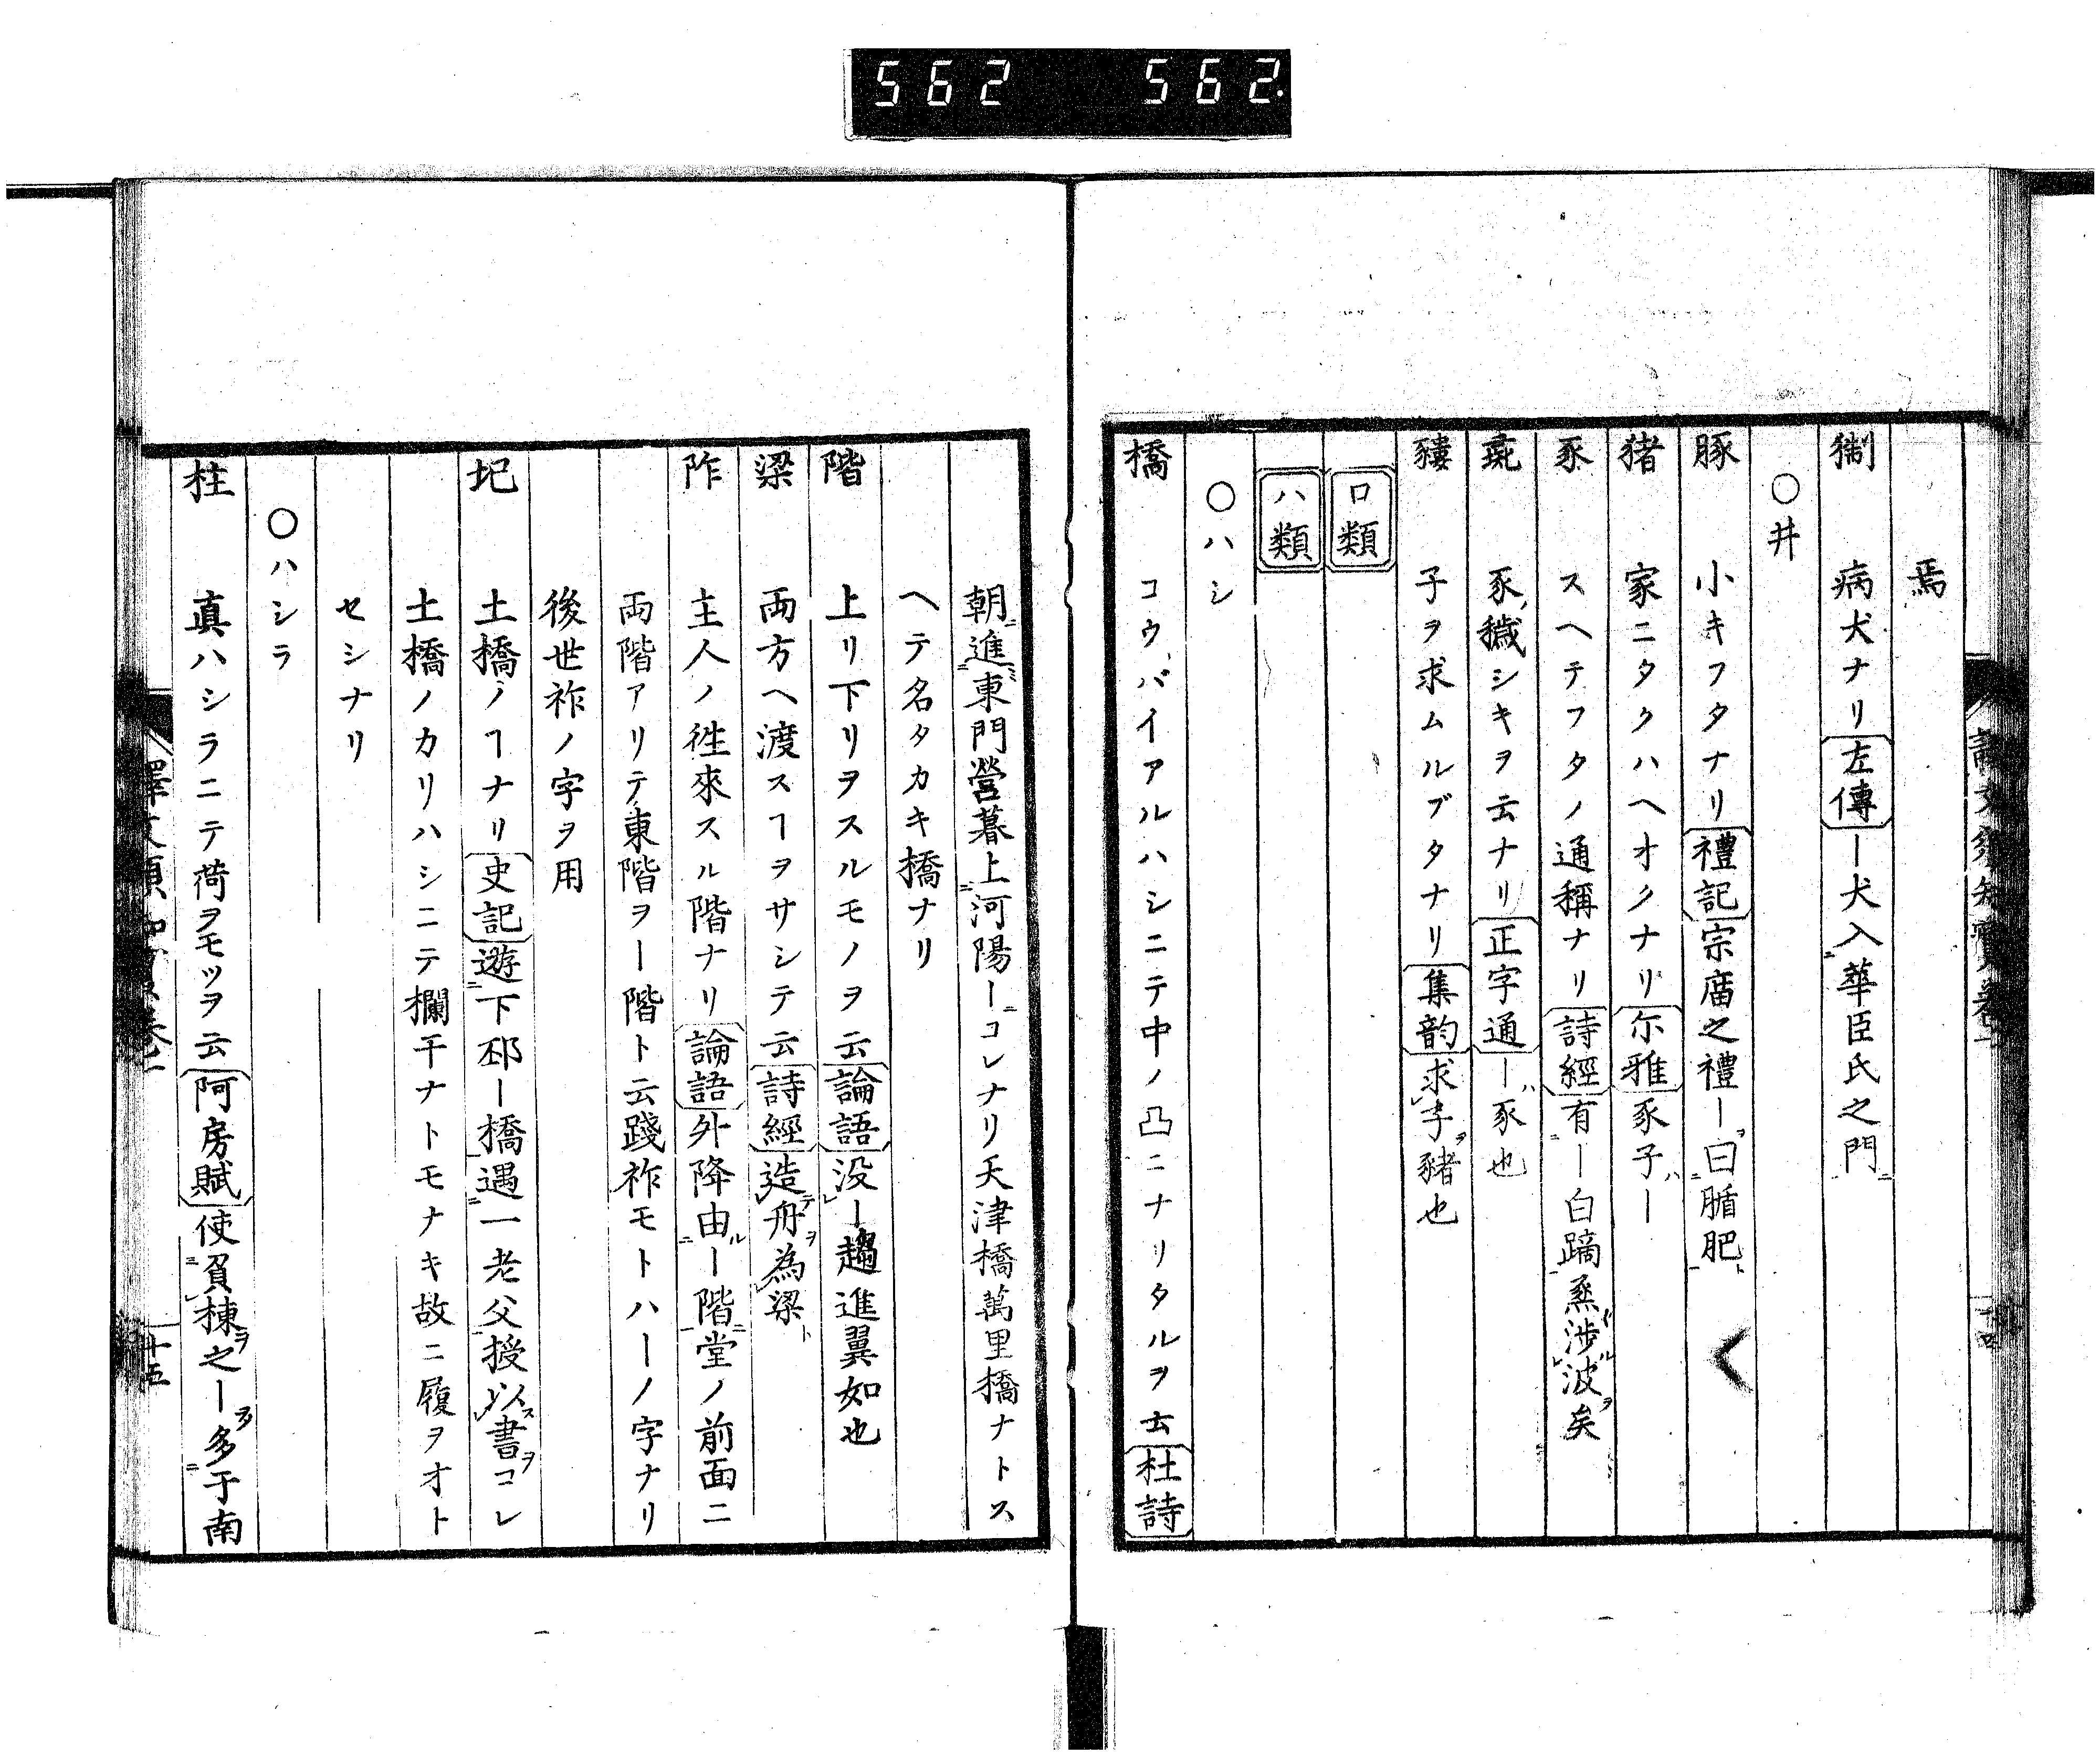 562 562.
焉
猘 病犬ナリ左傳ー犬入華臣氏之門
○井
豚 小キフタナリ禮記宗庿之禮ー曰腯肥
猪 家ニタクハヘオクナリ尓雅豕子ー
豕 スヘテフタノ通稱ナリ詩經有ー白蹢烝渉波矣
豕穢シキヲ云ナリ正字通ー豕也
子ヲ求ムルブタナリ集韵求子豬也
ロ類
ハ類
○ハシ
橋 コウバイアルハシニテ中ノ凸ニナリタルヲ云杜詩
朝進東門營暮上河陽ーコレナリ天津橋萬里橋ナトス
ヘテ名タカキ橋ナリ
階 上リ下リヲスルモノヲ云論語没ー趨進翼如也
梁 両方ヘ渡スヿヲサシテ云詩經造舟為梁
阼 主人ノ徃來スル階ナリ論語外降由ー階堂ノ前面ニ
両階アリテ東階ヲー階ト云踐祚モトハーノ字ナリ
後世祚ノ字ヲ用
圯 土橋ノヿナリ史記遊下邳ー橋遇一老父授以書コレ
土橋ノカリハシニテ欄干ナトモナキ故ニ履ヲオト
セシナリ
○ハシラ
柱 真ハシラニテ荷ヲモツヲ云阿房賦使負棟之ー多于南